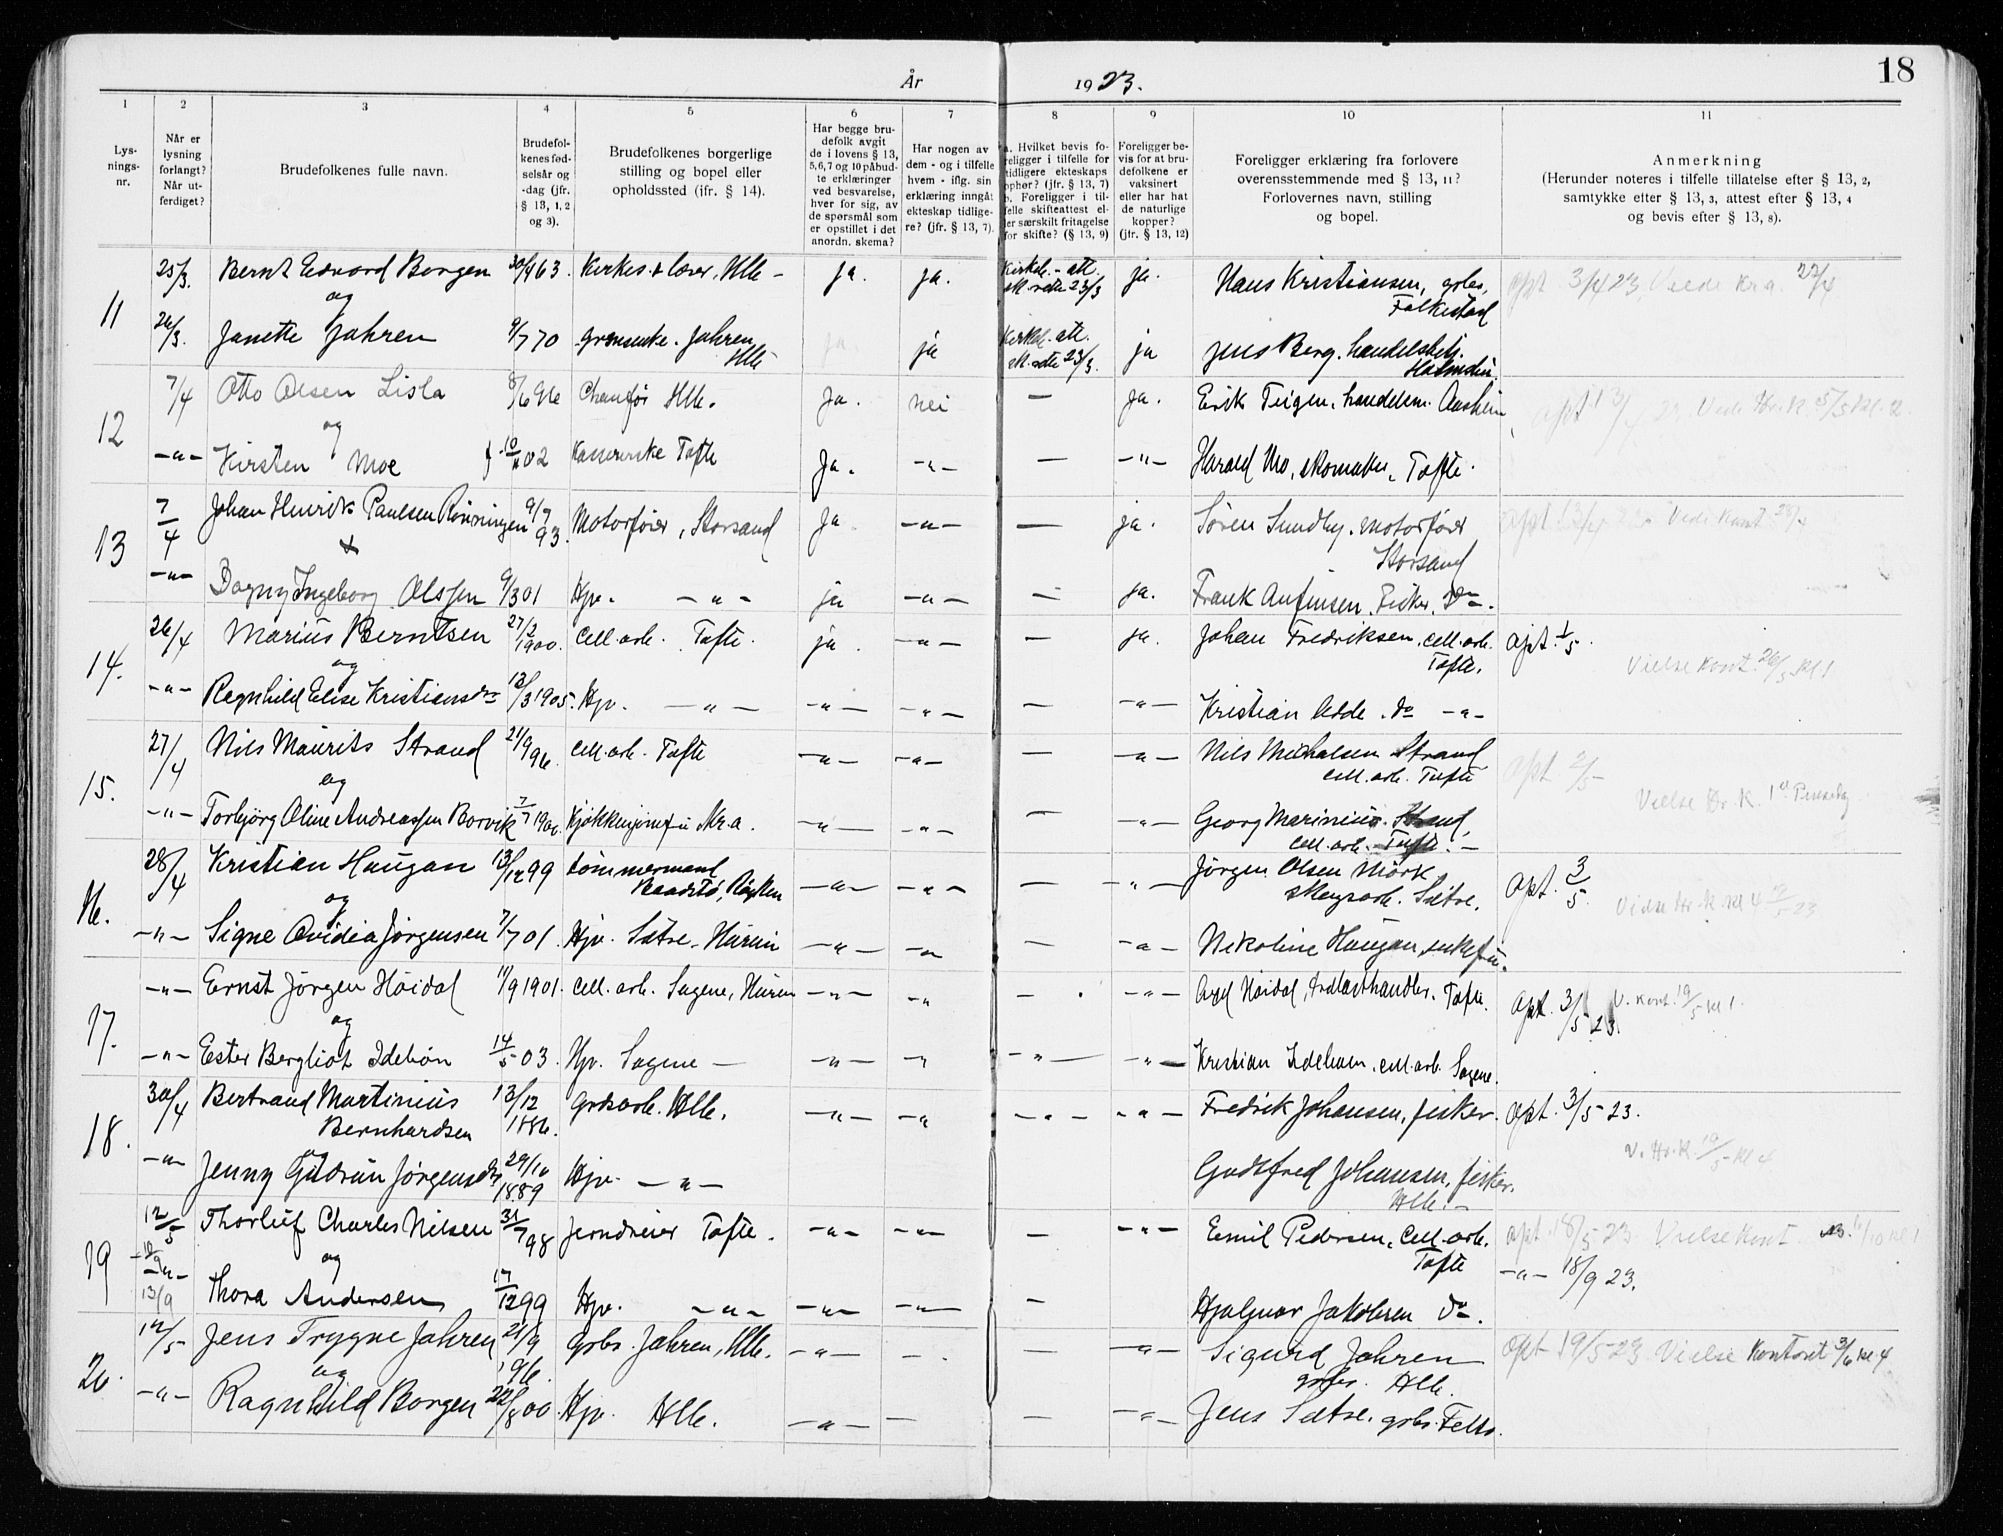 18
År 1923.
1 2 3 4 5 6 7 8 9 10 11
Lys-
nings-
nr.
Når er
lysning
forlangt?
Når ut-
ferdiget?
Brudefolkenes fulle navn.
Brudefol-
kenes fød-
selsår og
-dag (jfr.
§ 13, 1, 2
og 3).
Brudefolkenes borgerlige
stilling og bopel eller
opholdssted (jfr. § 14).
Har begge bru-
defolk avgit
de i lovens § 13,
5,6,7 og 10 påbud-
te erklæringer
ved besvarelse,
hver for sig, av
de spørsmål som
er opstillet i det
anordn. skema?
Har nogen av
dem - og i tilfelle
hvem - iflg. sin
erklæring inngåt
ekteskap tidlige-
re? (jfr. § 13, 7).
a. Hvilket bevis fo-
religger i tilfelle for
tidligere ekteskaps
ophør? (jfr. § 13, 7)
b. Foreligger i til-
felle skifteattest el-
ler særskilt fritagelse
for skifte? (§ 13, 9)
Foreligger be-
vis for at bru-
defolkene er
vaksinert
eller har hat
de naturlige
kopper?
(jfr. § 13, 12)
Foreligger erklæring fra forlovere
overensstemmende med § 13, 11?
Forlovernes navn, stilling
og bopel.
Anmerkning
(Herunder noteres i tilfelle tillatelse efter § 13, 2,
samtykke etter § 13, 3, attest efter § 13, 4
og bevis efter § 13, 8).
11 25/3. Bernt Edvard Borgen 30/4 63. Kirkes. + lærer, Hlle - ja. ja. Kirkel. - att. 23/3 ja. Hans Kristiansen, grbs, Falkestad opt. 3/4 23. Vielse Kr.a. 22/4
og
26/3. Janette Jahren 9/7 70 Jahren Hlle ja ja Kirkel. att. 23/3. ja Jens Berg. handelsbetj. Holmsbu.
12 7/4 Otto Olsen Lisla 8/6 96 Chaufør Hlle. Ja. nei — ja. Erik Teigen, handelsm. opt 13/4 23.
og
-"- Kirsten Moe 10/11 02 Kassererske Tofte Ja. -"- — -"- Harald Mo, skomaker, Tofte.
13 7/4 Johan Henrik Paulsen Rønningen 9/7 93. Motorfører, Storsand Ja -"- — ja. Søren Sundby. motorfører Storsand opt 13/4 23. Vielse Kont. 28/4
+
-"- Dagny Ingeborg Olssen 9/3 01 Hjv. -"- ja -"- — ja. Frank Anfinsen, Fisker. Do -.
14. 26/4 Marius Berntsen 27/2 1900. Cell. arb. Tofte. ja. -"- — ja. Johan Fredriksen, cell. arb. Tofte. opt. 1/5. Vielse Kont. 26/5 kl 1
og
-"- Ragnhild Elise Kristiansdtr 13/3 1905. Hjv. -"- -"- -"- — -"- Kristian Udde. Do -"-
15. 27/4 Nils Maurits Strand 21/9 96. Cell. arb. Tofte -"- -"- — -"- Nils Michalsen Strand cell. arb. Tofte opt. 2/5 Vielse Hr. K. 1ste Pinsedag
og
-"- Torbjörg Oline Andreassen Borvik 7/7 1900. Kjøkkenjomfru Kr.a. -"- -"- — -"- Georg Marinius Strand, Cell. arb. Tofte. -
16. 28/4 Kristian Haugan 13/12 99 tømmermand Baadstø, Røyken -"- -"- — -"- Jørgen Olsen Mørk skogsarb. Sætre. opt. 3/5. Vielse Hr. K. kl 4 12/5 23
og
-"- Signe Ovidia Jørgensen 7/7 01. Hjv. Sætre, Hurum -"- -"- — -"- Nikoline Haugan, enkefru.
17. -"- Ernst Jørgen Høidal 11/9 1901. Cell. arb. Sagene, Hurum -"- -"- — -"- Axel Høidal, trælasthandler. Tofte. opt. 3/5 23. V. Kont. 19/5 kl 1.
og
-"- Ester Bergliot Idehøn 14/5 03. Hjv. Sagene — -"- -"- -"- -"- Kristian Idehøn, cell. arb. Sagene.
18. 30/4 Bertrand Martinius Bernhardsen 13/12 1886. Grdsarb. Hlle. -"- -"- -"- -"- Fredrik Johansen, fisker. opt. 3/5 23. V. Hr. K. 19/5 kl 4
og
-"- Jenny Gudrun Jørgensdtr 29/10 1889 Hjv. -"- Godtfred Johansen, fisker. Hlle. -
19 12/5 Thorleif Charles Nilsen 31/7 98 jerndreier Tofte. -"- -"- — -"- Emil Pedersen, Cell. arb. Tofte opt. 18/5 23 Vielse Kont
og
-"- 13/9 Thora Andersen 17/12 99 Hjv. -"- -"- -"- — Hjalmar Jakobsen Do. -"- 18/9 23.
20. 14/5 Jens Trygve Jahren 21/9 96. Grbs. Jahren, Hlle. -"- - — -"- Sigurd Jahren grbs. Hlle. opt 19/5 23 Vielse Kontoret 3/6 kl. 4
og
-"- Ragnhild Borgen 22/8 00. Hjv. Hlle. -"- — — -"- Jens Sætre. grbs.